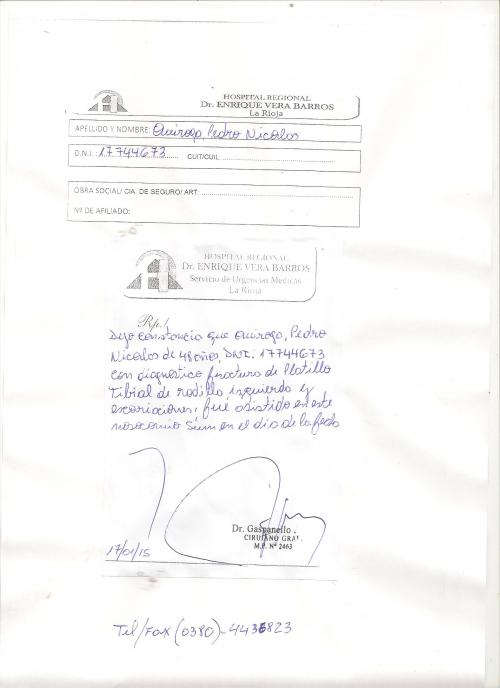 HOSPITAL REGIONAL
Dr. ENRIQUE VERA BARROS
La Rioja
APELLIDO Y NOMBRE: Quiroga, Pedro Nicolas
D.N.I.: 17744673 CUIT/CUIL:
OBRA SOCIAL/ CIA. DE SEGURO/ ART:
Nº DE AFILIADO:
HOSPITAL REGIONAL
Dr. ENRIQUE VERA BARROS
Servicio de Urgencias Medicas
La Rioja
Rp./
Dejo constancia que Quiroga, Pedro
Nicolas de 48 años, DNI: 17744673
con diagnostico fractura de Platillo
Tibial de rodilla izquierda y
escoriaciones, fué asistido en este
nosocomio en el dia de la fecha
Dr. Gaspanello
CIRUJANO GRAL.
M.P. Nº 2463
17/01/15
Tel/Fax (0380)-4435823